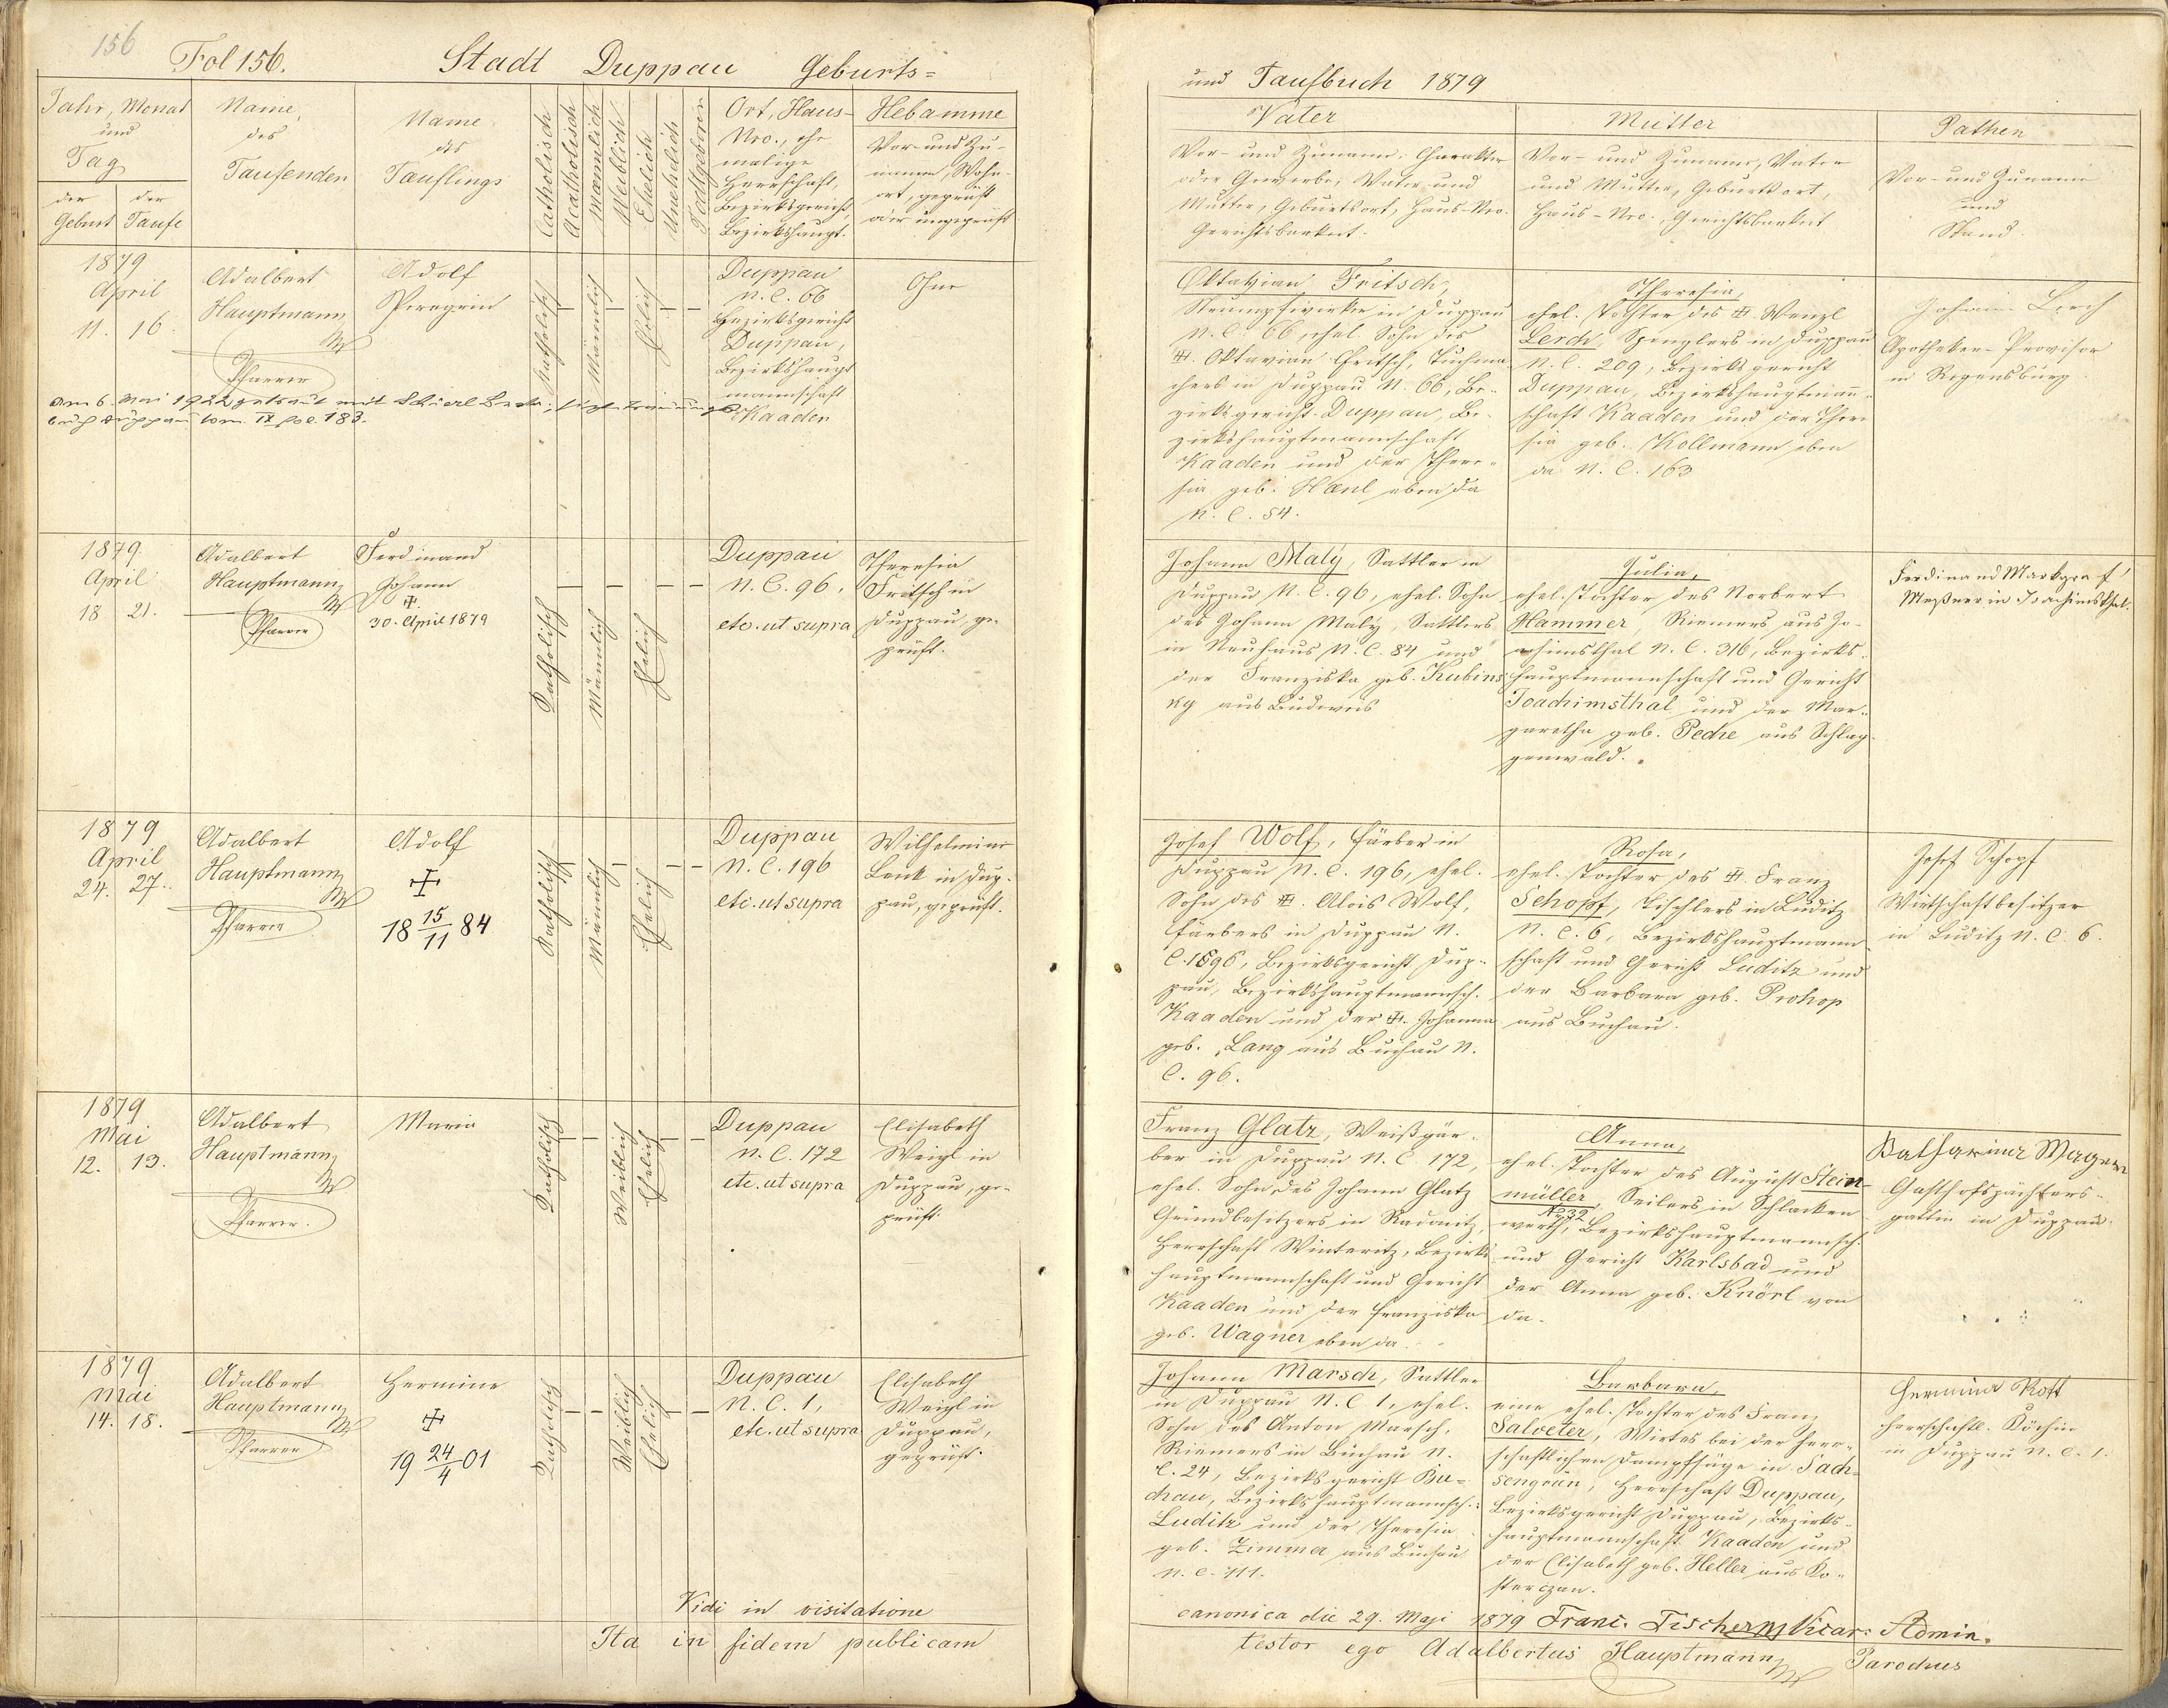 156
Fol 156. Stadt Duppau Geburts=
Jahr, Monat
und
Tag
der der
Geburt Taufe
Name
des
Taufenden
Name
des
Täuflings
Catholisch
Acatholisch
Männlich
Weiblich
Ehelich
Unehelich
Todtgeboren
Ort, Haus-
Nro., ehe
malige
Herrschaft,
Bezirksgericht,
Bezirkshaupt.
Hebamme
Vor- und Zu-
name, Wohn-
ort, geprüft
oder ungeprüft
1879
April
11. 16.
Adalbert
Hauptmann
Pfarrer
Adolf
Peregrin
Katholisch
Männlich
Ehelich
Duppau
N. C. 66
Bezirksgericht
Duppau,
Bezirkshaupt
mannschaft
Kaaden
Ohne
am 6. Mai 1922 getraut mit
buch Duppau tom. IX fol. 183.
1879.
April
18 21.
Adalbert
Hauptmann
Pfarrer
Ferdinand
Johann
✝.
30. April 1879
Katholisch
Männlich
Ehelich
Duppau
N. C. 96,
etc. ut supra
Theresia
Fritsch in
Duppau, ge-
prüft.
1879
April
24. 27.
Adalbert
Hauptmann
Pfarrer
Adolf
✝
18 15/11 84
Katholisch
Männlich
Ehelich
Duppau
N. C. 196
etc. ut supra
Wilhelmine
Lenk in Dup-
pau, geprüft.
1879
Mai
12. 13.
Adalbert
Hauptmann
Pfarrer.
Maria
Katholisch
Weiblich
Ehelich
Duppau
N. C. 172
etc. ut supra
Elisabeth
Weigl in
Duppau, ge-
prüft.
1879
Mai
14. 18.
Adalbert
Hauptmann
Pfarrer
Hermine
✝
19 24/4 01
Katholisch
Weiblich
Ehelich
Duppau
N. C. 1,
etc. ut supra
Elisabeth
Weigl in
Duppau,
geprüft.
Vidi in visitatione
Ita in fidem publicam
und Taufbuch 1879
Vater
Vor- und Zuname, Charakter
oder Gewerbe, Vater und
Mutter, Geburtsort, Haus-Nro.
Gerichtsbarkeit.
Mutter
Vor- und Zuname, Vater
und Mutter, Geburtsort,
Haus-Nro., Gerichtsbarkeit
Pathen
Vor- und Zuname
und
Stand.
Oktavian Fritsch,
Strumpfwirker in Duppau
N. C. 66, ehel. Sohn des
✝. Oktavian Fritsch, Tuchma
chers in Duppau N. 66, Be-
zirksgericht Duppau, Be-
zirkshauptmannschaft
Kaaden und der There-
sia geb. Hænl eben da
N. C. 54.
Theresia,
ehel. Tochter des ✝. Wenzl
Lerch, Spenglers in Duppau
N. C. 209, Bezirksgericht
Duppau, Bezirkshauptman̄-
schaft Kaaden und der There
sia geb. Kollmann eben
da N. C. 163
Johann Lerch
Apotheker-Provisor
in Regensburg
Johann Malý, Sattler in
Duppau N. C. 96, ehel. Sohn
des Johann Malý, Sattlers
in Neuhaus N. C. 84 und
der Franziska geb. Kubins
ky aus Budweis
Julia,
ehel. Tochter des Norbert
Hammer, Riemers aus Jo-
achimsthal N. C. 316, Bezirks-
hauptmannschaft und Gericht
Joachimsthal und der Mar-
garetha geb. Peche aus Schlag-
genwald.
Ferdinand Markgraf,
Meßner in Joachimsthal.
Josef Wolf, Färber in
Duppau N. C. 196, ehel.
Sohn des ✝. Alois Wolf,
Färbers in Duppau N.
C. 196, Bezirksgericht Dup-
pau, Bezirkshauptmannsch.
Kaaden und der ✝. Johanna
geb. Lang aus Buchau N.
C. 96.
Rosa,
ehel. Tochter des ✝. Franz
Schopf, Tischlers in Luditz
N. C. 6, Bezirkshauptmann-
schaft und Gericht Luditz und
der Barbara geb. Prokop
aus Buchau.
Josef Schopf
Wirtschaftsbesitzer
in Luditz N. C. 6.
Franz Glatz, Weißgär-
ber in Duppau N. C 172,
ehel. Sohn des Johann Glatz
Grundbesitzers in Radonitz,
Herrschaft Winteritz, Bezirks
hauptmannschaft und Gericht
Kaaden und der Franziska
geb. Wagner eben da.
Anna,
ehel. Tochter des August Stein-
müller, Seilers in Schlacken-
No 32
werth, Bezirkshauptmannsch.
und Gericht Karlsbad und
der Anna geb. Knörl von
da.
Katharina Mager
Gasthofspächters-
gattin in Duppau.
Johann Marsch, Sattler
in Duppau N. C 1, ehel.
Sohn des Anton Marsch,
Riemers in Buchau N.
C. 24, Bezirksgericht Bu-
chau, Bezirkshauptmannsch.
Luditz und der Theresia
geb. Zimmer aus Buchau
N. C. 111.
Barbara,
eine ehel. Tochter des Franz
Salveter, Wirtes bei der herr-
schaftlichen Dampfsäge in Sach-
sengrün, Herrschaft Duppau,
Bezirksgericht Duppau, Bezirks-
hauptmannschaft Kaaden und
der Elisabeth geb. Heller aus Ko-
sterczan.
Hermina Rott
herrschaftl. Köchin
in Duppau N. C. 1.
canonica die 29. Maji 1879 Franc. Tischer Vicar: Admin.
testor ego Adalbertus Hauptmann Parochus